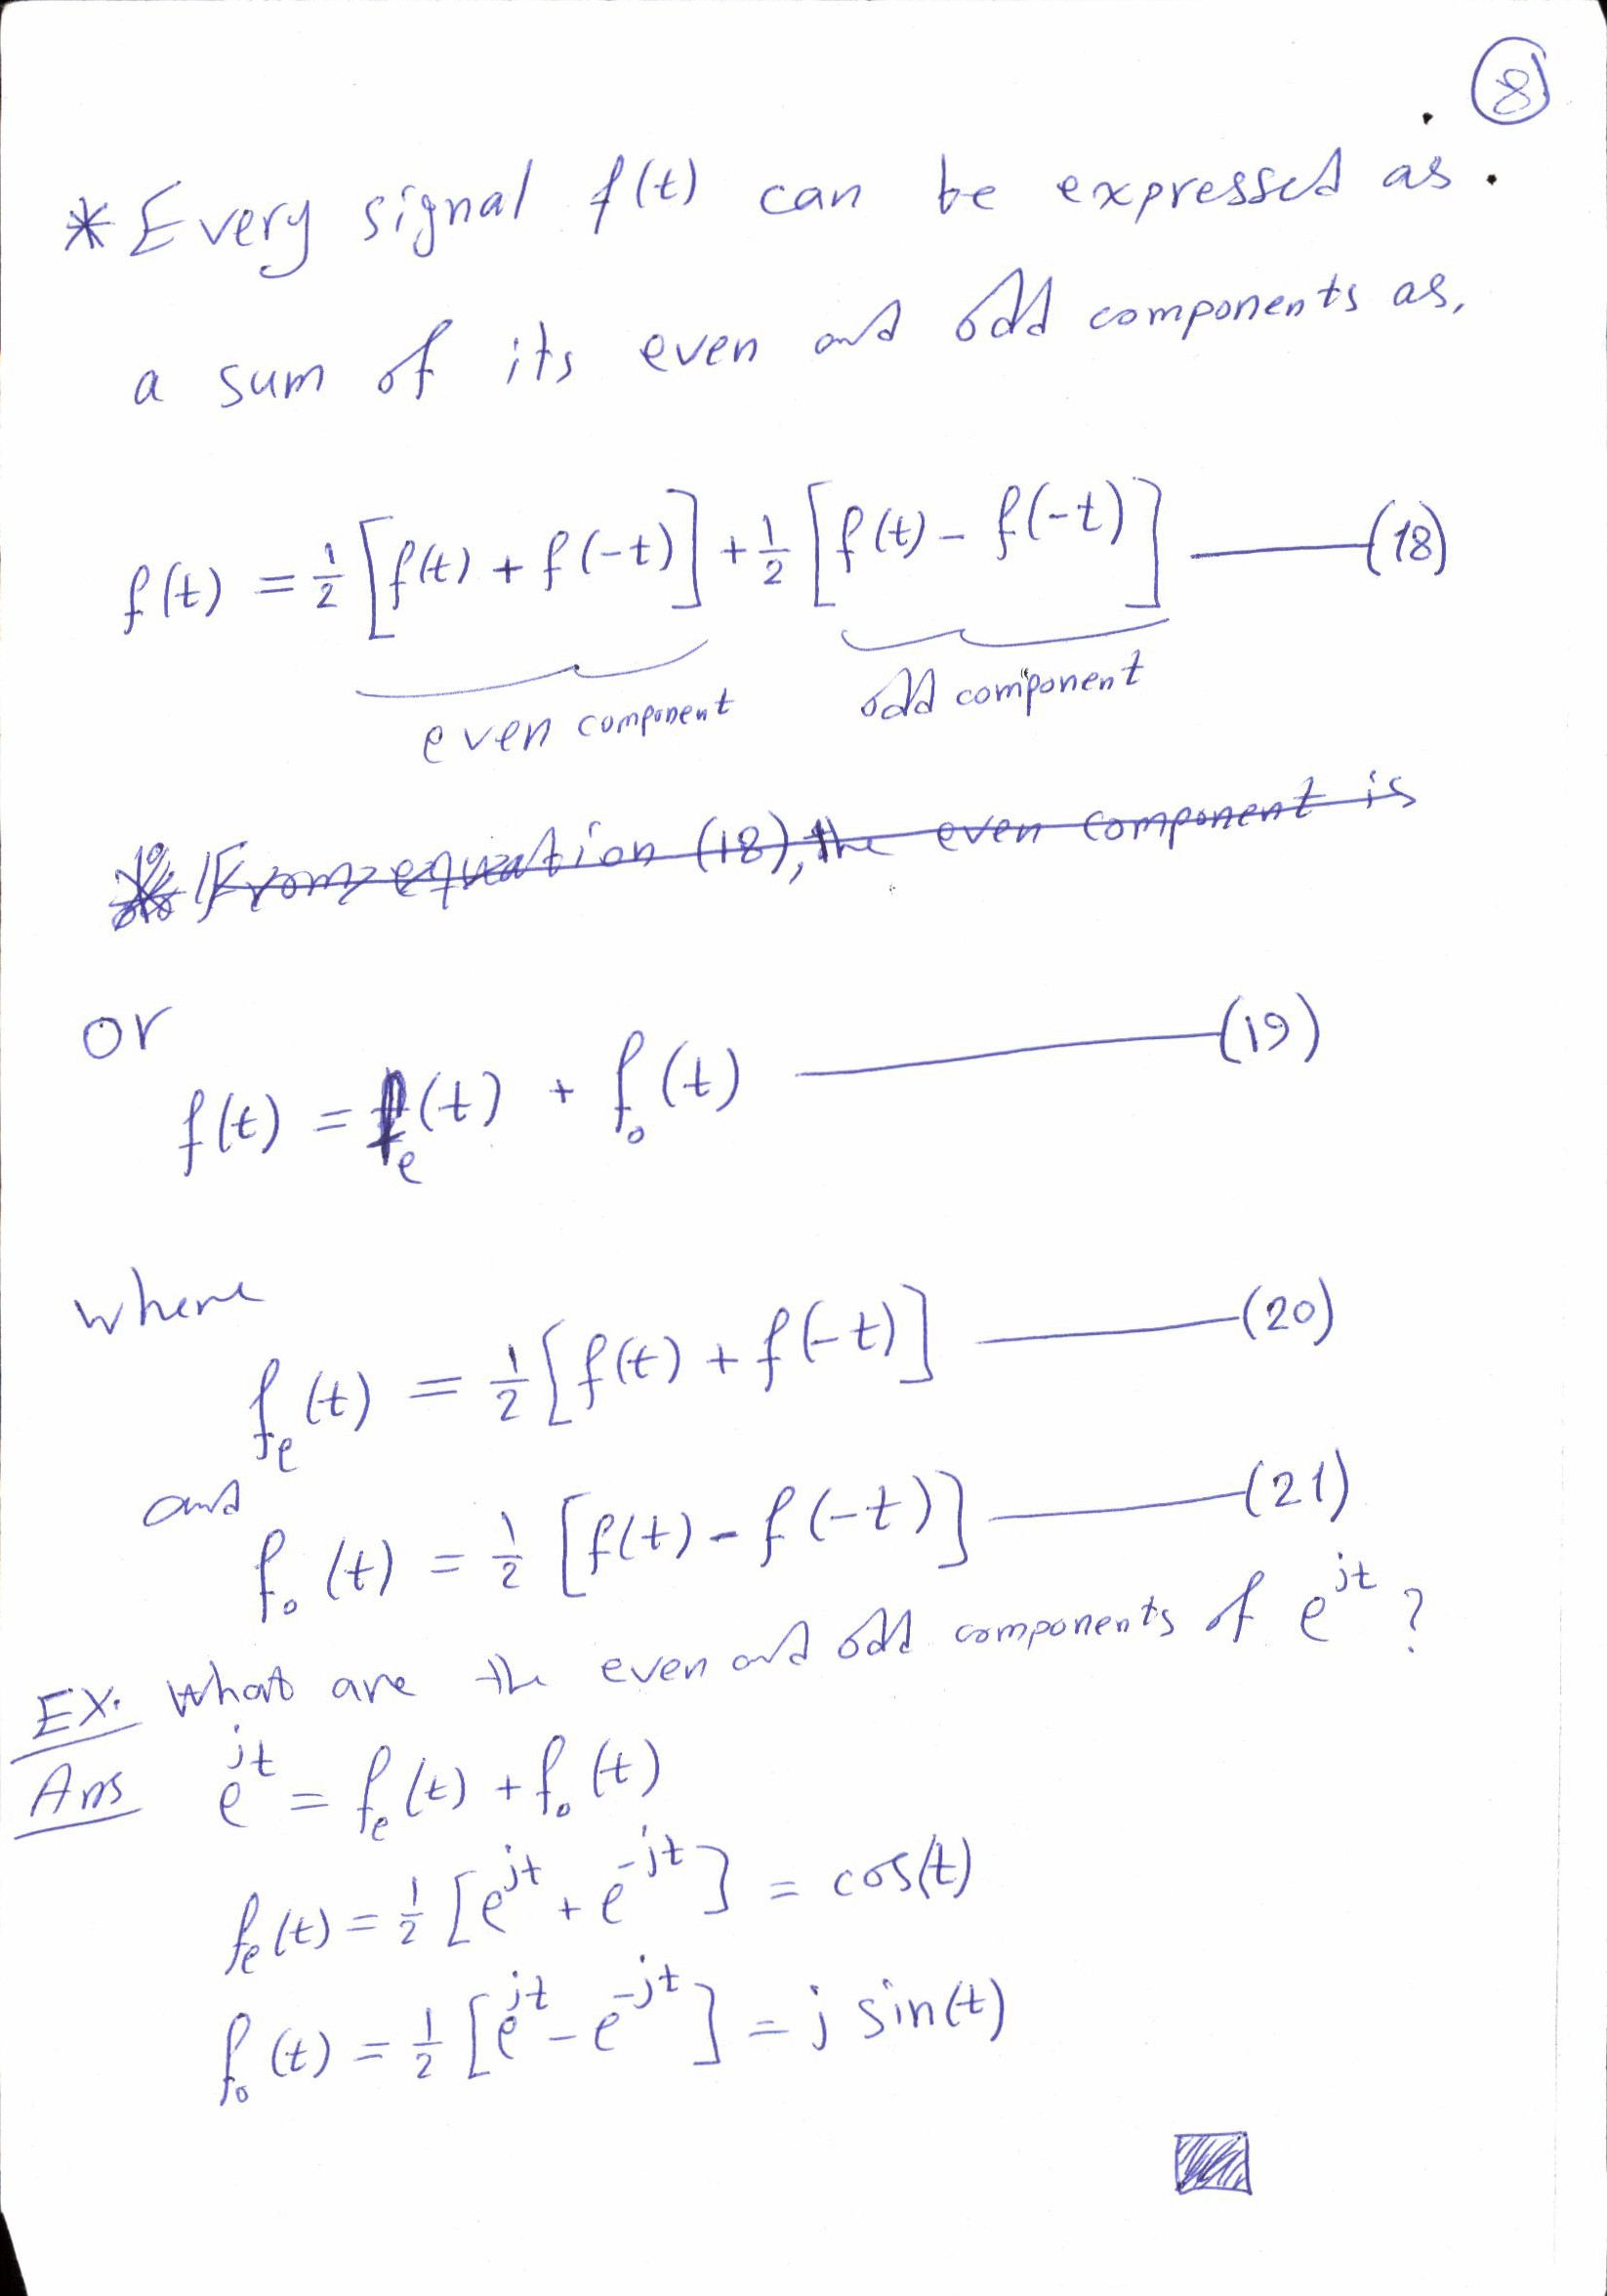 8
* Every signal f(t) can be expressed as
a sum of its even and odd components as,
f(t) = 1/2 [f(t) + f(-t)] + 1/2 [f(t) - f(-t)] —— (18)
even component odd component
From equation (18), the even component is
or
f(t) = fₑ(t) + fₒ(t) —— (19)
where
fₑ(t) = 1/2 [f(t) + f(-t)] —— (20)
and
fₒ(t) = 1/2 [f(t) - f(-t)] —— (21)
EX. What are the even and odd components of e^{jt} ?
Ans e^{jt} = fₑ(t) + fₒ(t)
fₑ(t) = 1/2 [e^{jt} + e^{-jt}] = cos(t)
fₒ(t) = 1/2 [e^{jt} - e^{-jt}] = j sin(t)